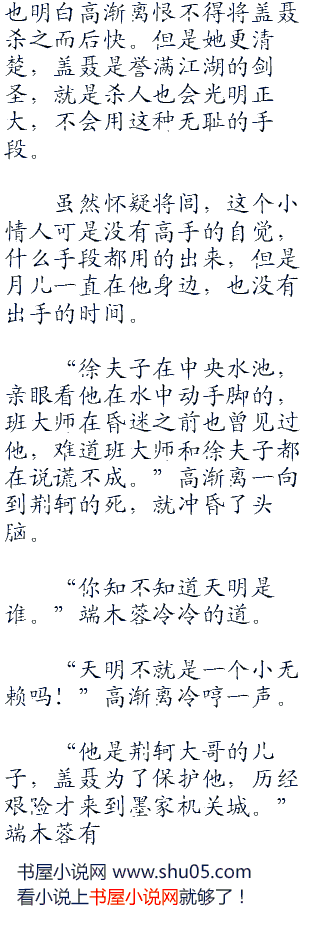 也明白高渐离恨不得将盖聂
杀之而后快。但是她更清
楚，盖聂是誉满江湖的剑
圣，就是杀人也会光明正
大，不会用这种无耻的手
段。
虽然怀疑将闾，这个小
情人可是没有高手的自觉，
什么手段都用的出来，但是
月儿一直在他身边，也没有
出手的时间。
“徐夫子在中央水池，
亲眼看他在水中动手脚的，
班大师在昏迷之前也曾见过
他，难道班大师和徐夫子都
在说谎不成。”高渐离一向
到荆轲的死，就冲昏了头
脑。
“你知不知道天明是
谁。”端木蓉冷冷的道。
“天明不就是一个小无
赖吗！”高渐离冷哼一声。
“他是荆轲大哥的儿
子，盖聂为了保护他，历经
艰险才来到墨家机关城。”
端木蓉有
书屋小说网 www.shu05.com
看小说上书屋小说网就够了！